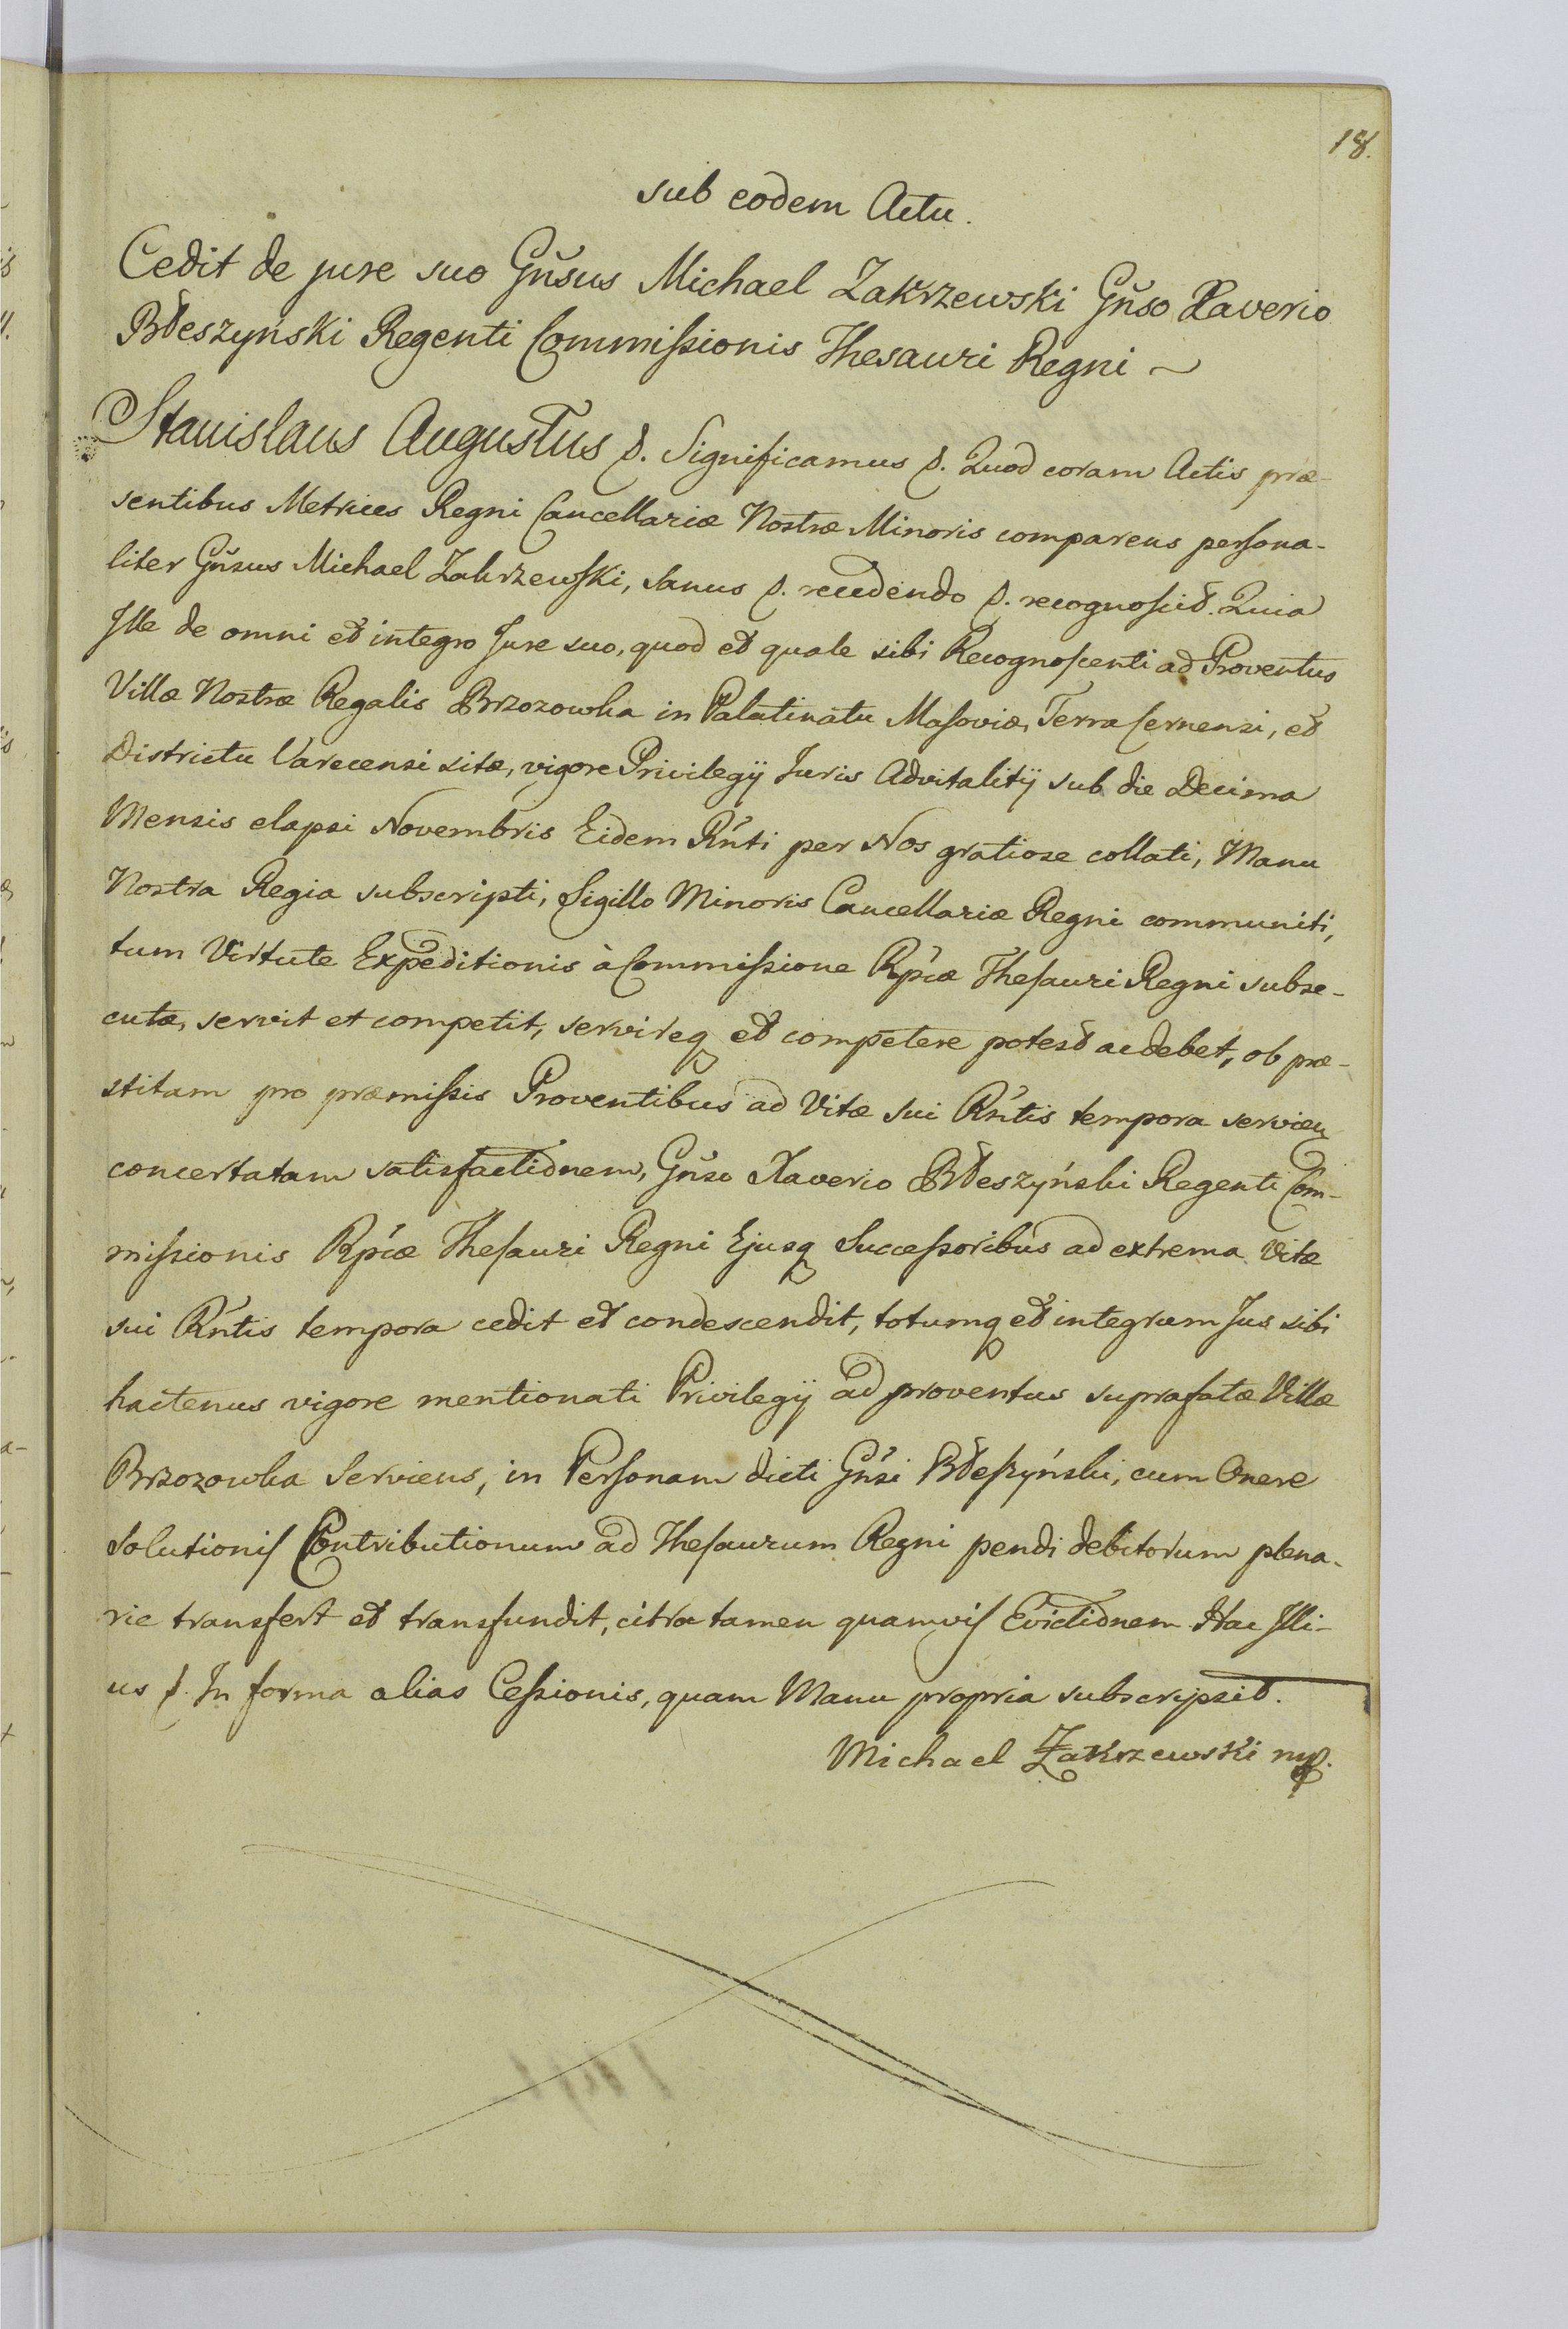 18.
sub eodem Actu.
Cedit de jure suo Gn̆sus Michael Zakrzewski Gn̆so Xaverio
Błeszyński Regenti Commissionis Thesauri Regni ~
Stanislaus Augustus &. Significamus &. Quod coram Actis præ-
sentibus Metrices Regni Cancellariæ Nostræ Minoris comparens persona-
liter Gn̆sus Michael Zakrzewski, sanus &. recedendo &. recognoscit. Quia
Ille de omni et integro Jure suo, quod et quale sibi Recognoscenti ad Proventus
Villæ Nostræ Regalis Brzozowka in Palatinatu Masoviæ, Terra Cernensi, et
Districtu Varecensi sitæ, vigore Privilegij Juris Advitalitij sub die Decima
Mensis elapsi Novembris Eidem Rńti per Nos gratiose collati, Manu
Nostra Regia subscripti, Sigillo Minoris Cancellariæ Regni communiti,
tum Virtute Expeditionis à Commissione Rp̃cæ Thesauri Regni subse-
cutæ, servit et competit, servireq et competere potest ac debet, ob præ-
stitam pro præmissis Proventibus ad Vitæ sui Rńtis tempora servien
concertatam satisfactionem, Gn̆so Xaverio Błeszyński Regenti Com-
missionis Rp̃cæ Thesauri Regni Ejusq Successoribus ad extrema Vitæ
sui Rńtis tempora cedit et condescendit, totumq et integrum Jus sibi
hactenus vigore mentionati Privilegij ad proventus suprafatæ Villæ
Brzozowka Serviens, in Personam dicti Gńsi Błeszyński, cum Onere
Solutionis Contributionum ad Thesaurum Regni pendi debitorum plena-
rie transfert et transfundit, citra tamen quamvis Evictionem. Hac Illi-
us &. In forma alias Cessionis, quam Manu propria subscripsit.
Michael Zakrzewski mp.